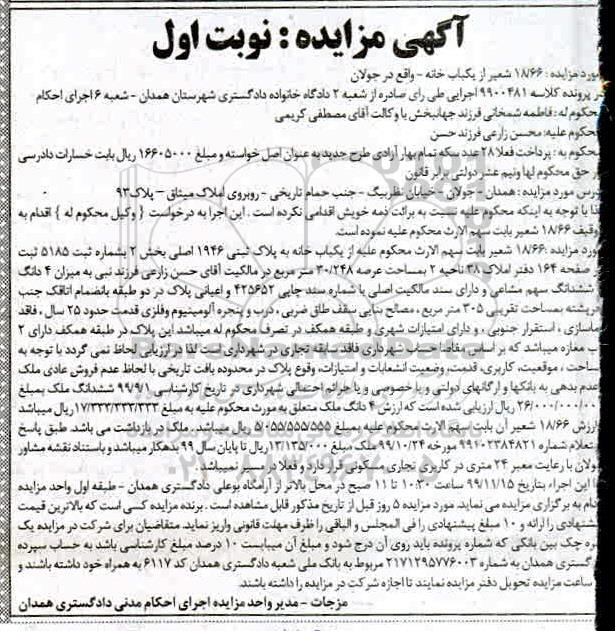 آگهی مزایده : نوبت اول
مورد مزایده : ۱۸/۶۶ شعیر از یکباب خانه – واقع در جولان
در پرونده کلاسه ۹۹۰۰۴۸۱ اجرایی طی رای صادره از شعبه ۲ دادگاه خانواده دادگستری شهرستان همدان – شعبه ۶ اجرای احکام
محکوم له : فاطمه شمخانی فرزند جهانبخش با وکالت آقای مصطفی کریمی
محکوم علیه: محسن زارعی فرزند حسن
محکوم به : پرداخت فعلا ۲۸ عدد سکه تمام بهار آزادی طرح جدید به عنوان اصل خواسته و مبلغ ۱۶۶۰۵۰۰۰ ریال بابت خسارات دادرسی
در حق محکوم لها ونیم عشر دولتی برابر قانون
آدرس مورد مزایده : همدان – جولان – خیابان نظربیگ – جنب حمام تاریخی – روبروی املاک میثاق – پلاک ۹۳
لذا با توجه به اینکه محکوم علیه نسبت به برائت ذمه خویش اقدامی نکرده است . این اجرا به درخواست { وکیل محکوم له } اقدام به
توقیف ۱۸/۶۶ شعیر بابت سهم الارث محکوم علیه نموده است.
مورد مزایده :۱۸/۶۶ شعیر بابت سهم الارث محکوم علیه از یکباب خانه به پلاک ثبتی ۱۹۴۶ اصلی بخش ۲ بشماره ثبت ۵۱۸۵ ثبت
صفحه ۱۶۴ دفتر املاک ۳۸ ناحیه ۲ بمساحت عرصه ۳۰/۲۴۸ متر مربع در مالکیت آقای حسن زارعی فرزند نبی به میزان ۴ دانگ
ششدانگ سهم مشاعی و دارای سند مالکیت اصلی با شماره سند چاپی ۴۲۵۶۵۲ و اعیانی پلاک در دو طبقه بانضمام اتاقک جنب
خرپشته بمساحت تقریبی ۳۰۵ متر مربع ، مصالح بنایی سقف طاق ضربی ، درب و پنجره آلومینیوم وفلزی قدمت حدود ۲۵ سال ، فاقد
نماسازی ، استقرار جنوبی ، و دارای امتیازات شهری و طبقه همکف در تصرف محکوم له میباشد این پلاک در طبقه همکف دارای ۲
باب مغازه میباشد که بر اساس مفاصا حساب شهرداری فاقد سابقه تجاری در شهرداری است لذا در ارزیابی لحاظ نمی گردد با توجه به
مساحت ، موقعیت، کاربری، قدمت، وضعیت انشعابات و امتیازات، وقوع پلاک در محدوده بافت تاریخی با لحاظ عدم فروش عادی ملک
عدم بدهی به بانکها و ارگانهای دولتی و یا خصوصی و یا جرائم احتمالی شهرداری در تاریخ کارشناسی ۹۹/۹/۱ ششدانگ ملک بمبلغ
۲۶/۰۰۰/۰۰۰/۰۰۰ ریال ارزیابی شده است که ارزش ۴ دانگ ملک متعلق به مورث محکوم علیه به مبلغ ۱۷/۳۳۳/۳۳۳/۳۳۳ ریال میباشد
ارزش ۱۸/۶۶ شعیر آن بابت سهم الارث محکوم علیه بمبلغ ۵/۰۵۵/۵۵۵/۵۵۵ ریال میباشد. ملک در بازداشت می باشد. طبق پاسخ
استعلام شماره ۹۹۱۰۲۳۸۴۸۲۱ مورخه ۹۹/۱۰/۲۴ ملک مبلغ ۱۳/۱۳۵/۰۰۰ ریال تا پایان سال ۹۹ بدهکار میباشد و باستناد نقشه مشاور
جولان با رعایت معبر ۲۴ متری در کاربری تجاری مسکونی قرار دارد و فعلا در مسیر نمیباشد.
لذا این اجراء بتاریخ ۹۹/۱۱/۱۵ ساعت ۱۰:۳۰ تا ۱۱ صبح در محل بالاتر از آرامگاه بوعلی دادگستری همدان – طبقه اول واحد مزایده
اقدام به برگزاری مزایده می نماید. مورد مزایده ۵ روز قبل از تاریخ مذکور قابل مشاهده است . برنده مزایده کسی است که بالاترین قیمت
پیشنهادی را ارائه و ۱۰ مبلغ پیشنهادی را فی المجلس و الباقی را ظرف مهلت قانونی واریز نماید. متقاضیان برای شرکت در مزایده یک
فقره چک بین بانکی که شماره پرونده باید روی آن درج شود و مبلغ آن میبایست ۱۰ درصد مبلغ کارشناسی باشد به حساب سپرده
دادگستری همدان به شماره ۲۱۷۱۲۹۵۷۷۶۰۰۳ مربوط به بانک ملی شعبه دادگستری همدان کد ۶۱۱۷ به همراه خود داشته باشند و
ساعت مزایده تحویل دفتر مزایده نمایند تا اجازه شرکت در مزایده را داشته باشند.
مزجات – مدیر واحد مزایده اجرای احکام مدنی دادگستری همدان